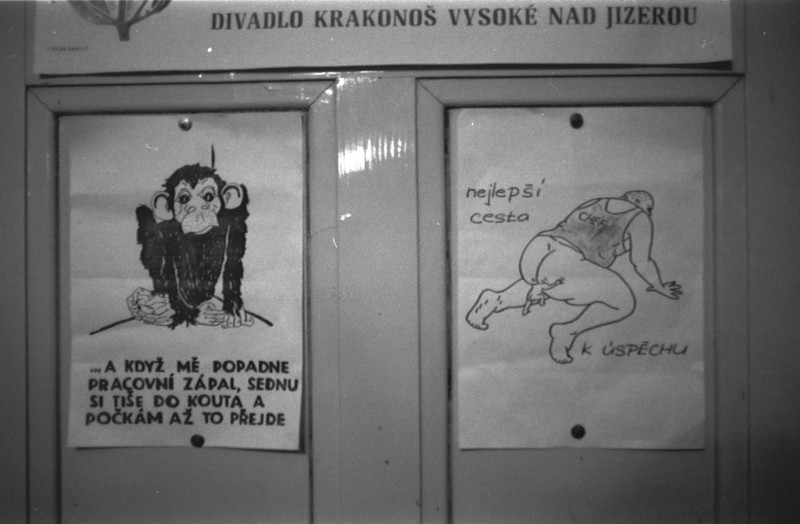 DIVADLO KRAKONOŠ VYSOKÉ NAD JIZEROU
...A KDYŽ MĚ POPADNE
PRACOVNÍ ZÁPAL, SEDNU
SI TIŠE DO KOUTA A
POČKÁM AŽ TO PŘEJDE
nejlepší
cesta
CHEF
K ÚSPĚCHU